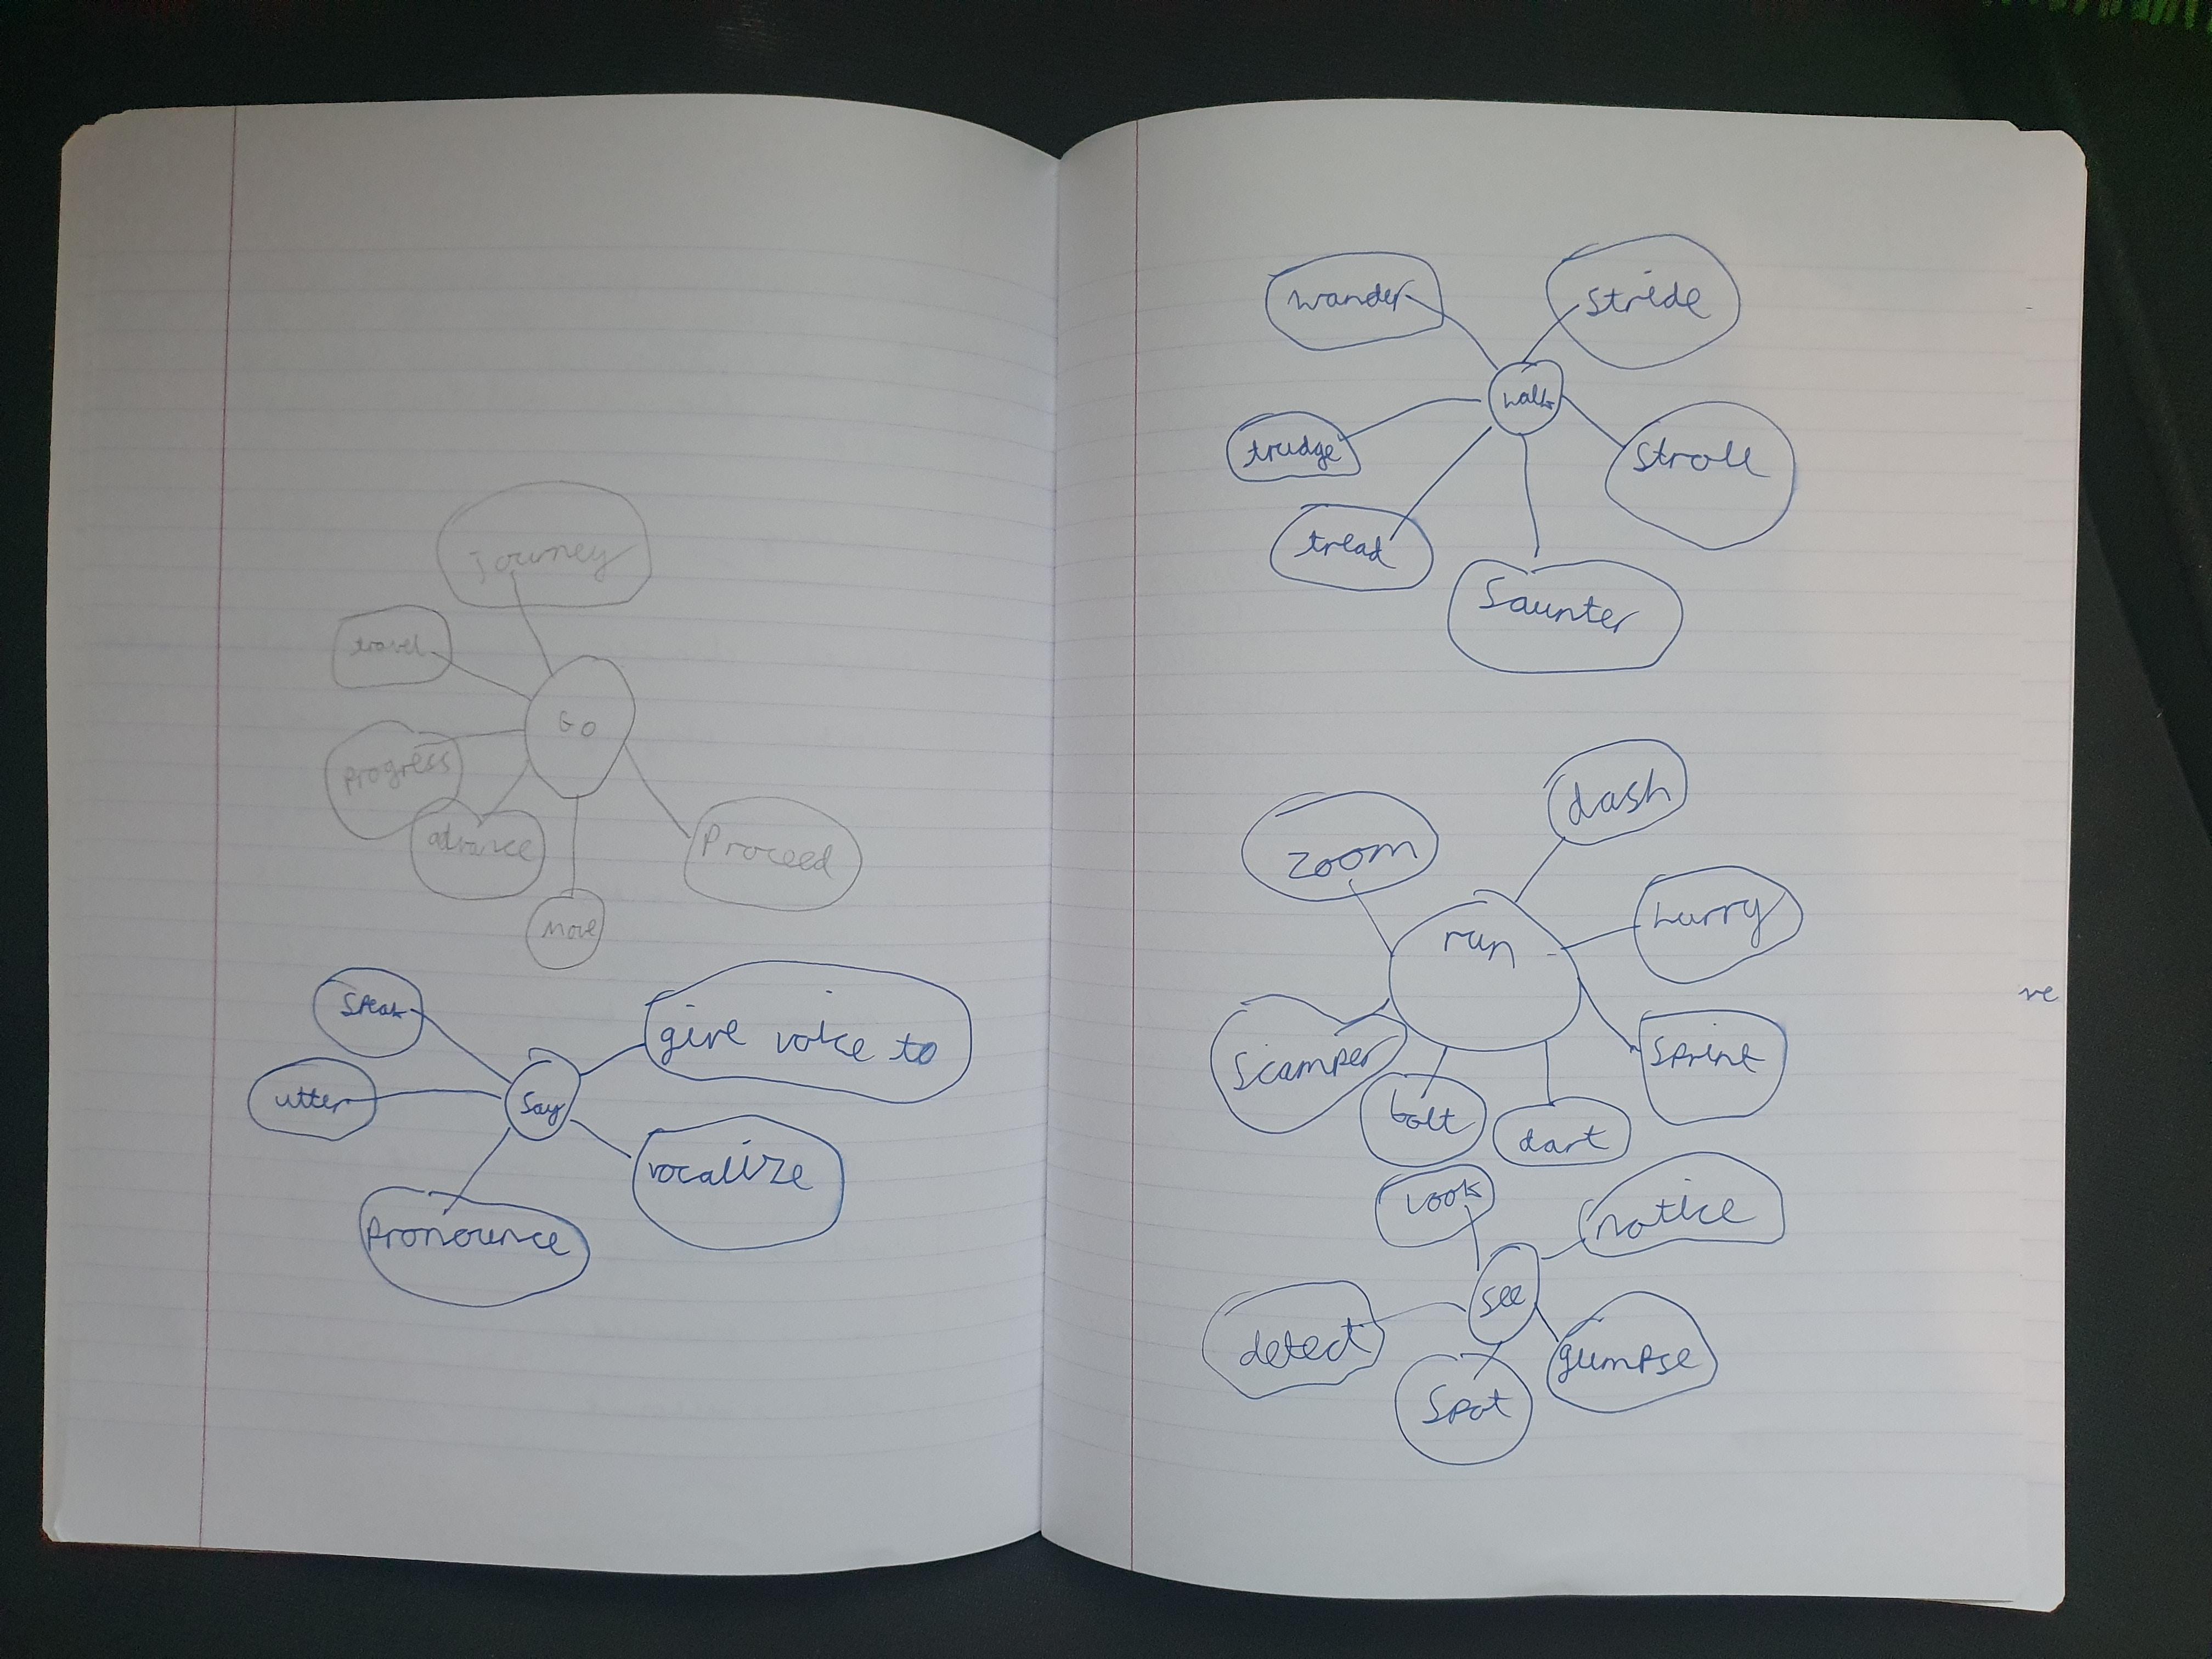 Journey
travel
Go
progress
advance
Proceed
Move
Speak
give voice to
utter
Say
vocalize
Pronounce
wander
stride
walk
trudge
stroll
tread
Saunter
dash
zoom
hurry
run
Scamper
Sprint
bolt
dart
Look
notice
see
detect
glimpse
Spot
ve